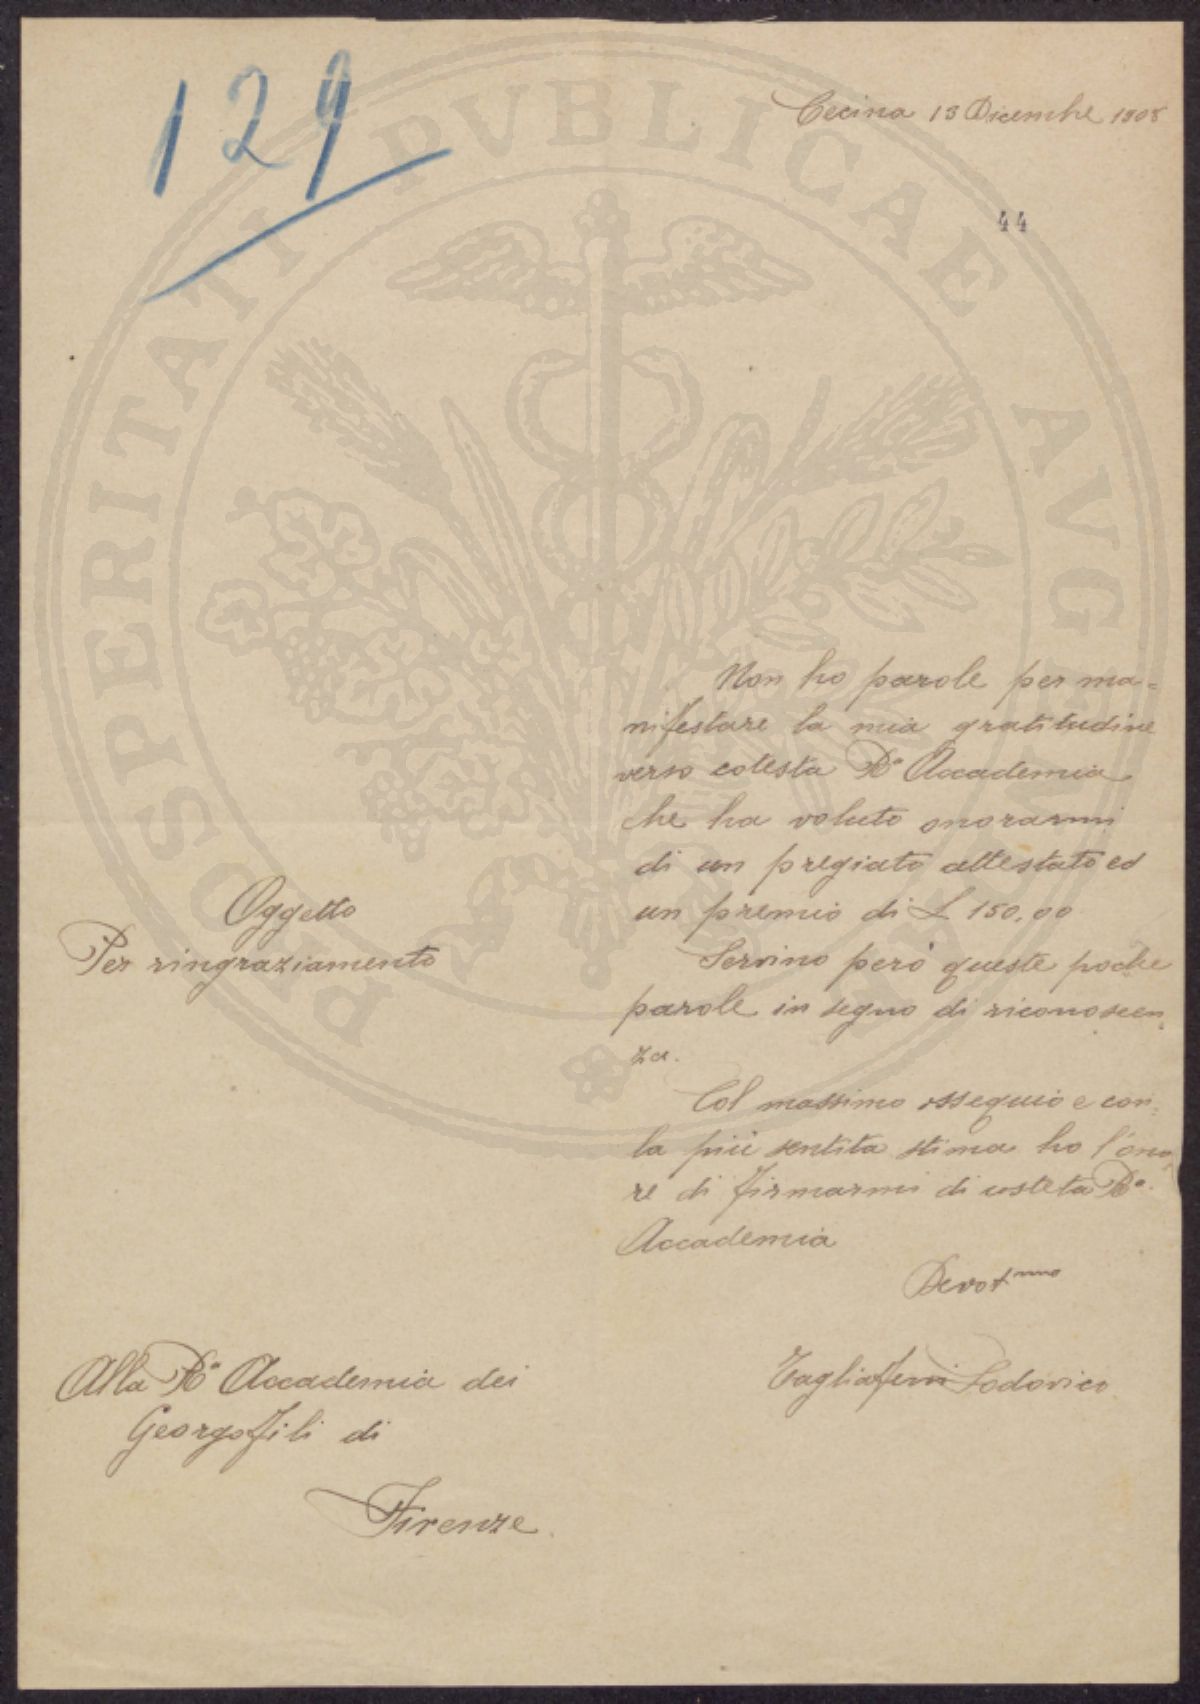 129
Cecina 13 Dicembre 1908
44
PROSPERITATI PVBLICAE AVGENDAE
Non ho parole per ma=
nifestare la mia gratitudine
verso cotesta Rª Accademia
che ha voluto onorarmi
di un pregiato attestato ed
un premio di L 150,00
Servino però queste poche
parole in segno di riconoscen,
za.
Col massimo ossequio e con,
la più sentita stima ho l'ono,
re di firmarmi di costeta Rª.
Accademia
Devotmmo
Tagliaferri Lodovico
Oggetto
Per ringraziamento
Alla Rª Accademia dei
Georgofili di
Firenze.